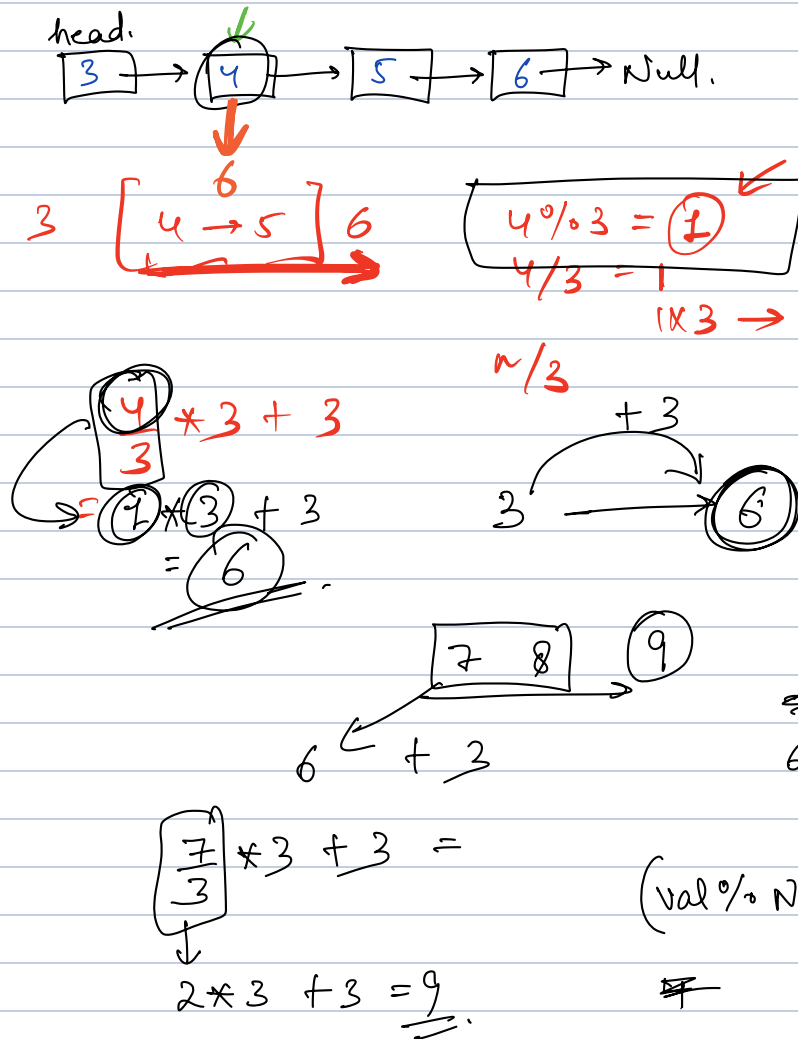 head.
3 → 4 → 5 → 6 → Null.
6
3 [ 4 → 5 ] 6
4 % 3 = 1
4/3 = 1
1x3 →
n/3
4/3 * 3 + 3
= 1 * 3 + 3
= 6
+3
3 → 6
7 8 9
6 + 3
6
7/3 * 3 + 3 =
(val % N
2 * 3 + 3 = 9